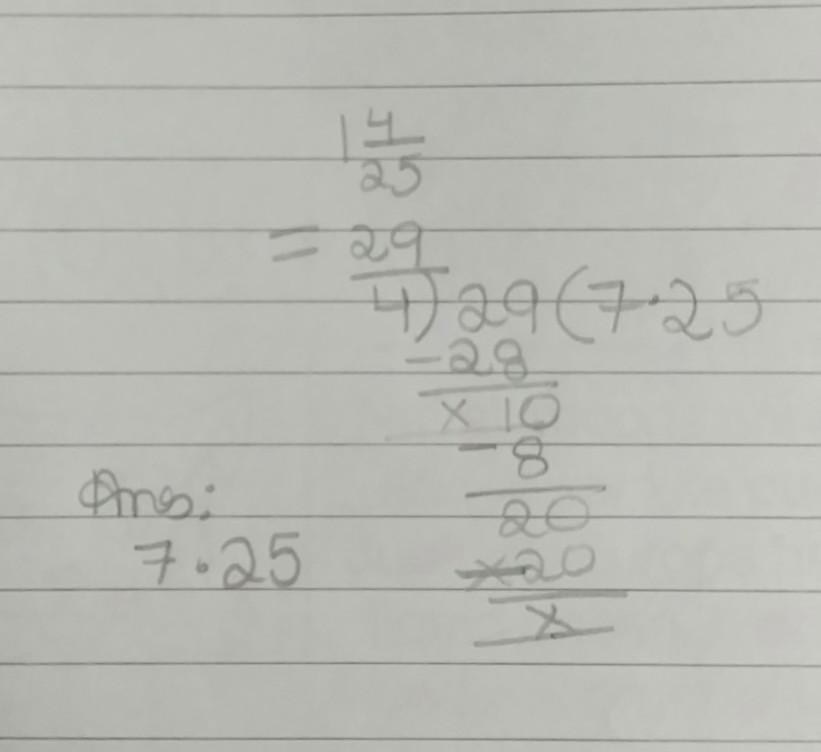 1 4/25
= 29/4) 29 (7.25
-28
x 10
-8
20
x20
x
Ans:
7.25